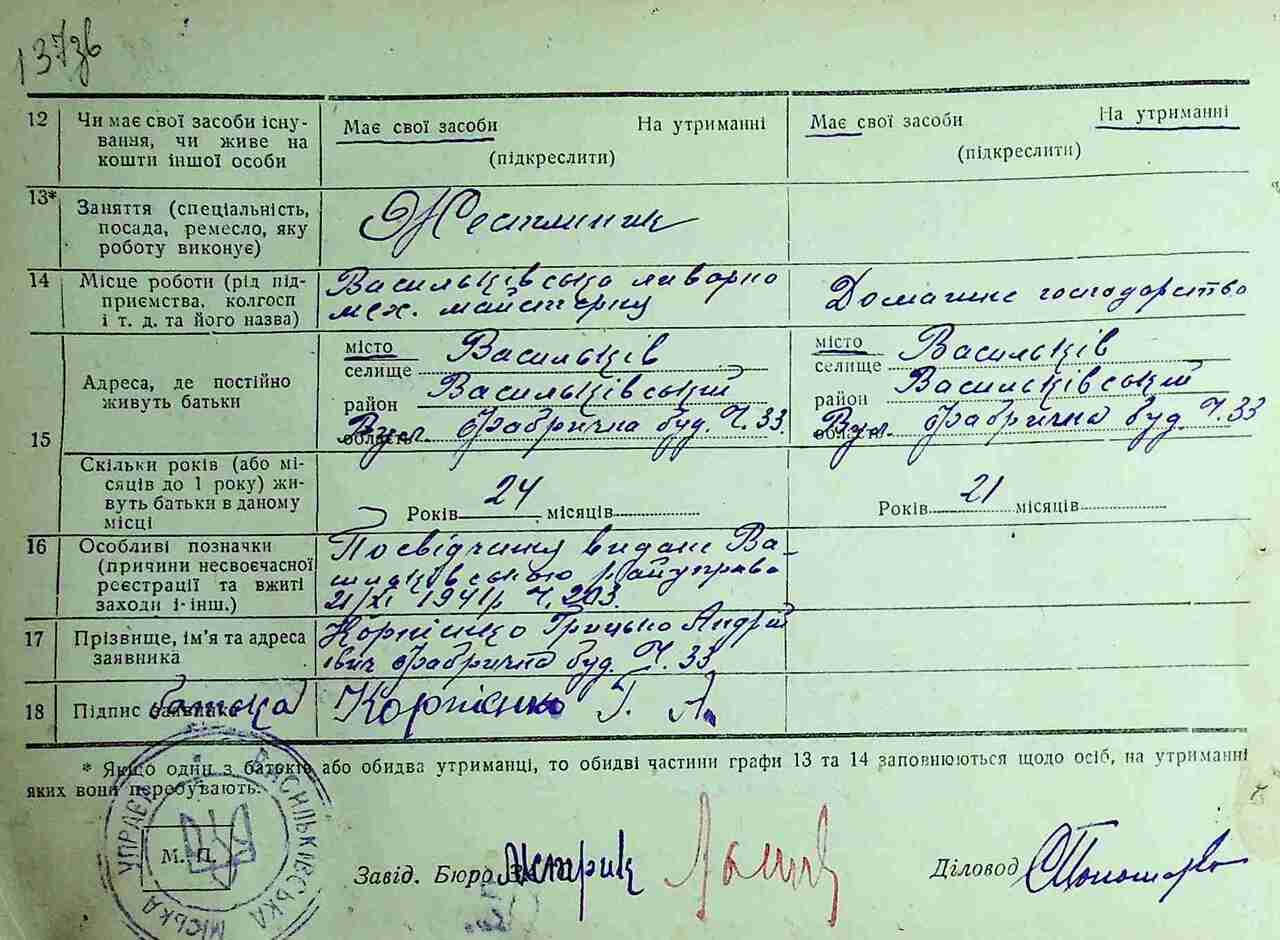 137зв
12 Чи має свої засоби існу-
вання, чи живе на
кошти іншої особи
Має свої засоби На утриманні
(підкреслити)
Має свої засоби На утриманні
(підкреслити)
13* Заняття (спеціальність,
посада, ремесло, яку
роботу виконує)
Жестяник
14 Місце роботи (рід під-
приємства, колгосп
і т. д. та його назва)
Васильківська ливарно
мех. майстерня
Домашнє господарство
15 Адреса, де постійно
живуть батьки
місто Васильків
селище
район Васильківський
Вул. Фабрична буд. Ч. 33.
місто Васильків
селище
район Васильківський
Вул. Фабрична буд. Ч. 33
Скільки років (або мі-
сяців до 1 року) жи-
вуть батьки в даному
місці
Років 24 місяців
Років 21 місяців
16 Особливі позначки
(причини несвоєчасної
реєстрації та вжиті
заходи і-інш.)
Посвідчення видане Ва-
сильківською райуправа
21/XI 1941р Ч. 203.
17 Прізвище, ім'я та адреса
заявника
Корнієнко Грицько Андрій
івич Фабрична буд. Ч. 33
18 Підпис батька
Корнієнко Г. А.
* Якщо один з батьків або обидва утриманці, то обидві частини графи 13 та 14 заповнюються щодо осіб, на утриманні
яких вони перебувають.
ВАСИЛЬКІВСЬКА МІСЬКА УПРАВА
М. П.
Завід. Бюро
Діловод